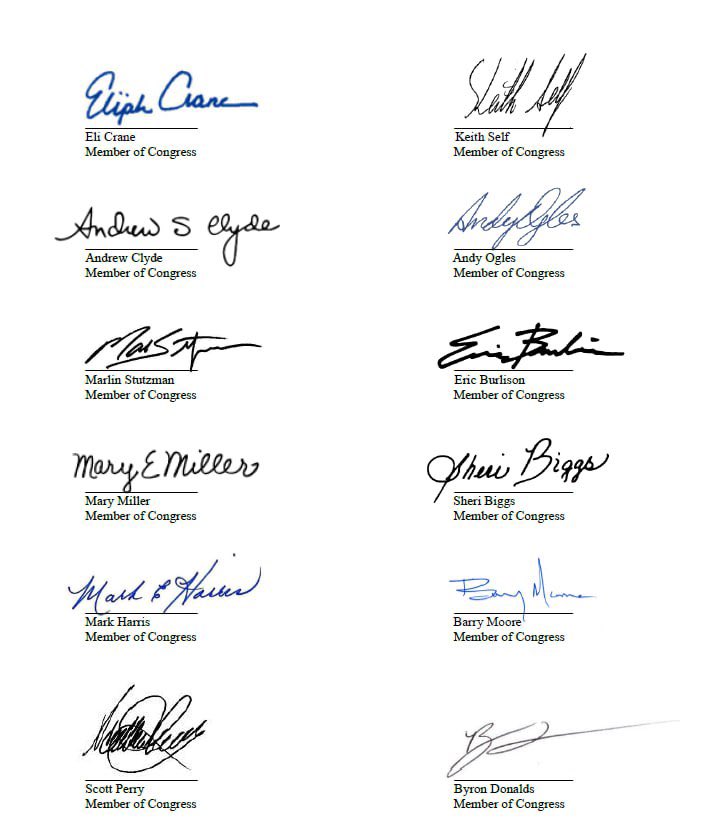 Elijah Crane
Keith Self
Eli Crane
Keith Self
Member of Congress
Member of Congress
Andrew S Clyde
Andy Ogles
Andrew Clyde
Andy Ogles
Member of Congress
Member of Congress
Marlin Stutzman
Eric Burlison
Member of Congress
Member of Congress
Mary E Miller
Sheri Biggs
Mary Miller
Sheri Biggs
Member of Congress
Member of Congress
Mark E Harris
Barry Moore
Mark Harris
Barry Moore
Member of Congress
Member of Congress
Scott Perry
Byron Donalds
Member of Congress
Member of Congress